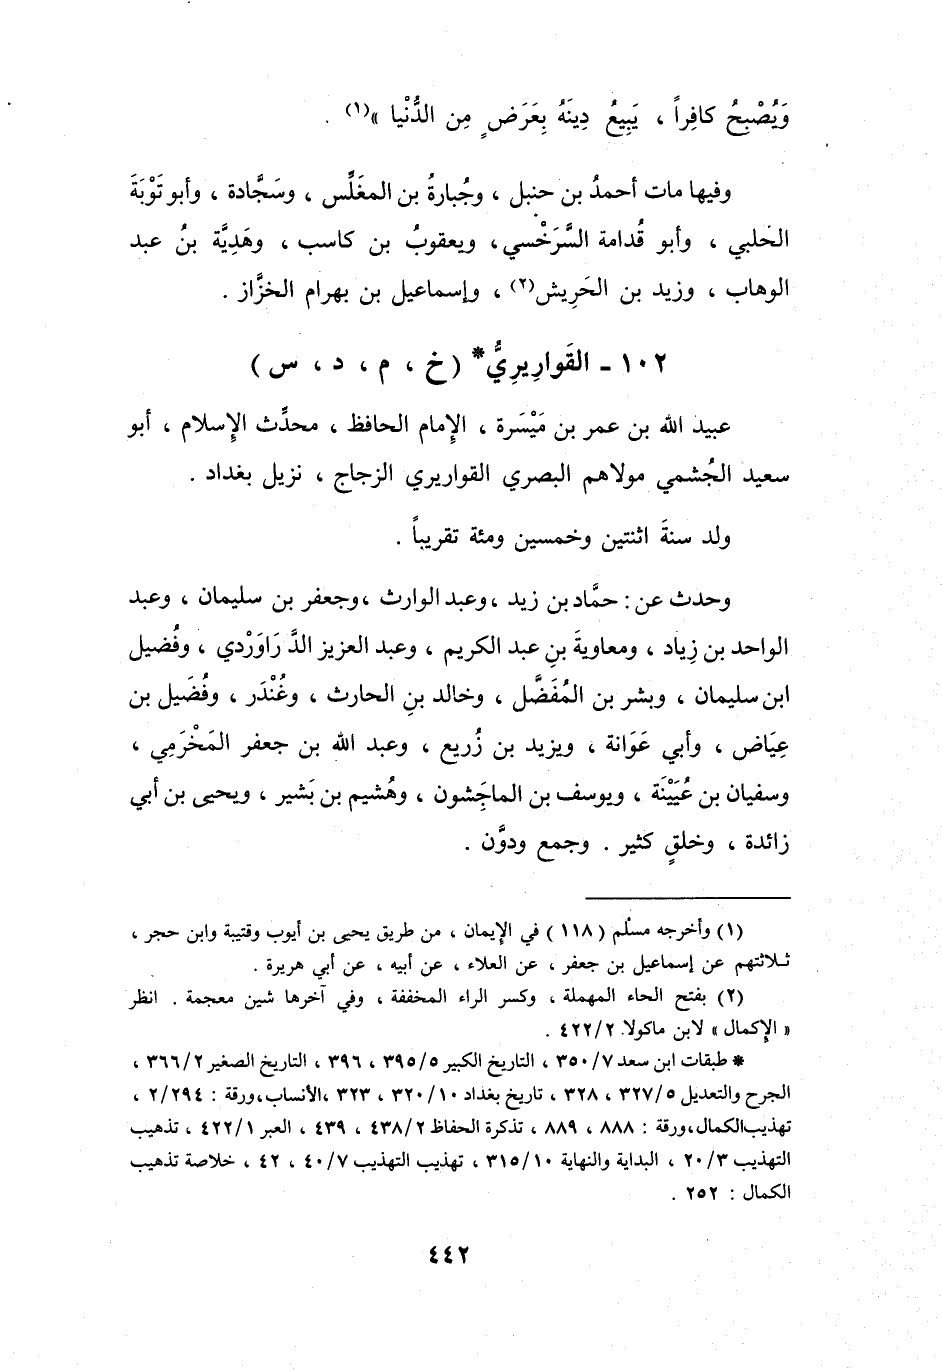 وَيُصْبِحُ كافِراً ، يَبِيعُ دِينَهُ بِعَرَضٍ مِن الدُّنْيا »(١) .
وفيها مات أحمدُ بن حنبل ، وجُبارةُ بن المغَلِّس ، وسَجَّادة ، وأبو تَوْبَةَ
الحَلبي ، وأبو قُدامة السَّرَخْسي، ويعقوبُ بن كاسب ، وهَدِيَّة بنُ عبد
الوهاب ، وزيد بن الحَرِيش(٢) ، وإسماعيل بن بهرام الخزَّاز .
١٠٢ - القَوارِيرِيُّ* (خ ، م ، د ، س)
عبيد الله بن عمر بن مَيْسَرة ، الإِمام الحافظ ، محدِّث الإِسلام ، أبو
سعيد الجُشمي مولاهم البصري القواريري الزجاج ، نزيل بغداد .
ولد سنةَ اثنتين وخمسين ومئة تقريباً .
وحدث عن : حمَّاد بن زيد ، وعبد الوارث ،وجعفر بن سليمان ، وعبد
الواحد بن زِياد ، ومعاويةَ بنِ عبد الكريم ، وعبد العزيز الدَّرَاوَرْدي ، وفُضيل
ابن سليمان ، وبشر بن المُفَضَّل ، وخالد بنِ الحارث ، وغُنْدَر ، وفُضَيل بن
عِيَاض ، وأبي عَوَانة ، ويزيد بن زُريع ، وعبد الله بن جعفر المَخْرَمِي ،
وسفيان بن عُيَيْنَة ، ويوسف بن الماجَشون ، وهُشيم بن بَشير ، ويحيى بن أبي
زائدة ، وخلقٍ كثير . وجمع ودوَّن .
(١) وأخرجه مسلم (١١٨) في الإِيمان ، من طريق يحيى بن أيوب وقتيبة وابن حجر ،
ثلاثتهم عن إسماعيل بن جعفر ، عن العلاء ، عن أبيه ، عن أبي هريرة .
(٢) بفتح الحاء المهملة ، وكسر الراء المخففة ، وفي آخرها شين معجمة . انظر
« الإِكمال » لابن ماكولا ٤٢٢/٢ .
* طبقات ابن سعد ٣٥٠/٧ ، التاريخ الكبير ٣٩٥/٥ ، ٣٩٦ ، التاريخ الصغير ٣٦٦/٢ ،
الجرح والتعديل ٣٢٧/٥ ، ٣٢٨ ، تاريخ بغداد ٣٢٠/١٠ ، ٣٢٣ ،الأنساب،ورقة : ٢/٢٩٤ ،
تهذيب الكمال،ورقة : ٨٨٨ ، ٨٨٩ ، تذكرة الحفاظ ٤٣٨/٢ ، ٤٣٩ ، العبر ٤٢٢/١ ، تذهيب
التهذيب ٢٠/٣ ، البداية والنهاية ٣١٥/١٠ ، تهذيب التهذيب ٤٠/٧ ، ٤٢ ، خلاصة تذهيب
الكمال : ٢٥٢ .
٤٤٢